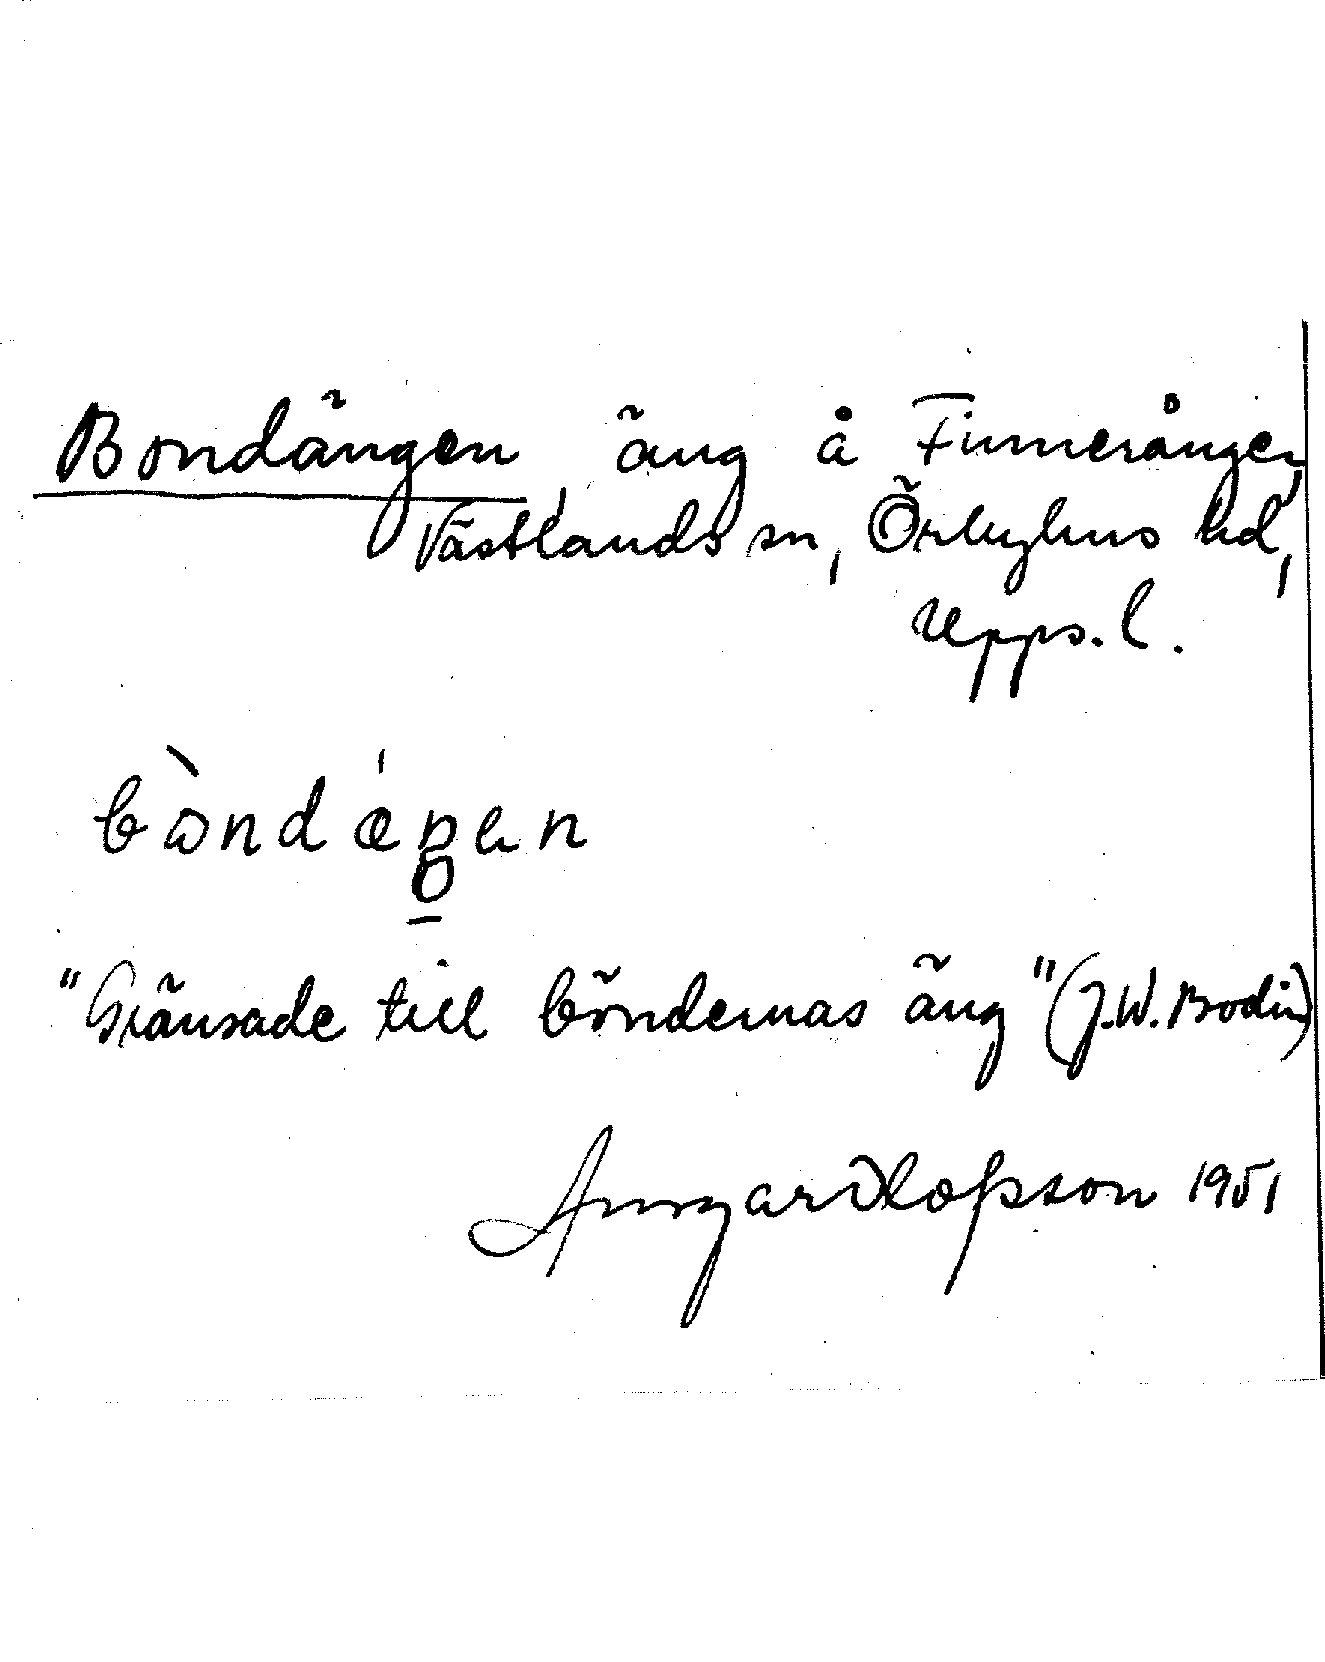 Bondängen, äng å Finnerånger,
Västlands sn, Örbyhus hd,
Upps. l.
bòndǽŋen
"Gränsade till böndernas äng" (J.W. Bodin)
Olofsson 1951